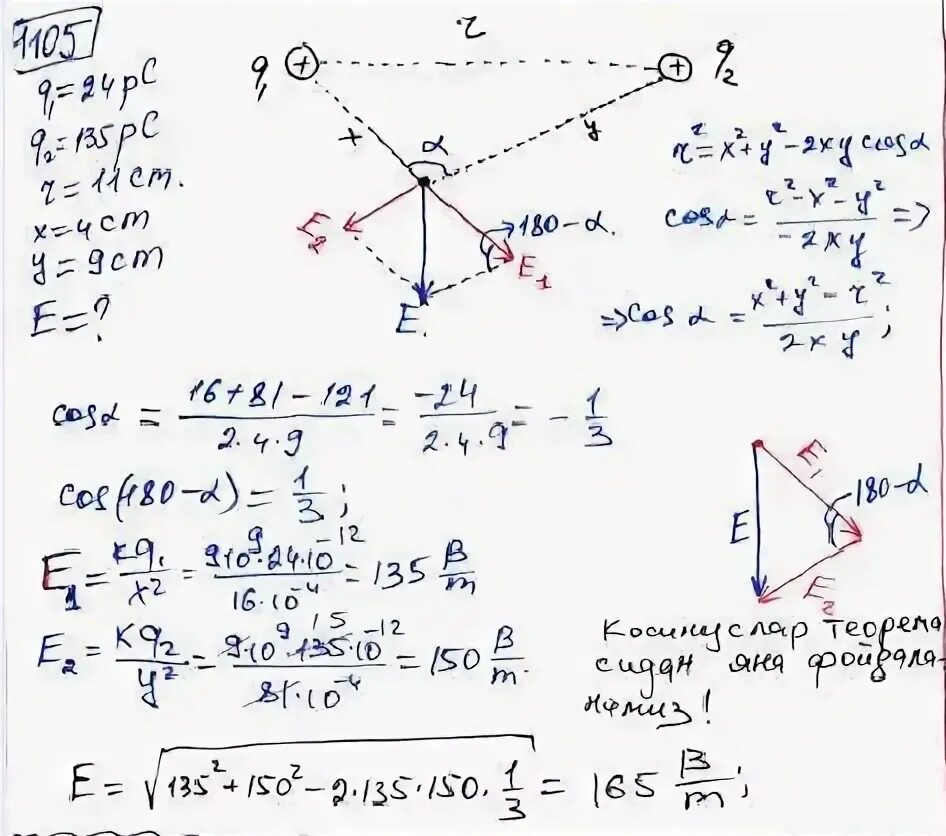 1105
q₁ = 24 pC
q₂ = 135 pC
r = 11 cm.
x = 4 cm
y = 9 cm
E = ?
r
q₁ + + q₂
x α y
E₂ 180-α. E₁
E.
r² = x² + y² - 2xy cosα
cosα = (r² - x² - y²)/(-2xy) =>
=> cosα = (x² + y² - r²)/(2xy);
cosα = (16+81-121)/(2·4·9) = -24/(2·4·9) = -1/3
cos(180-α) = 1/3;
E₁ = kq₁/x² = 9·10⁹·24·10⁻¹²/(16·10⁻⁴) = 135 В/m
E₂ = kq₂/y² = 9·10⁹·135·10⁻¹²/(81·10⁻⁴) = 150 В/m.
15
E₁
180-α
E
E₂
Косинуслар теорема
сидан яна фойдала-
намиз!
E = √(135² + 150² - 2·135·150·1/3) = 165 В/m;